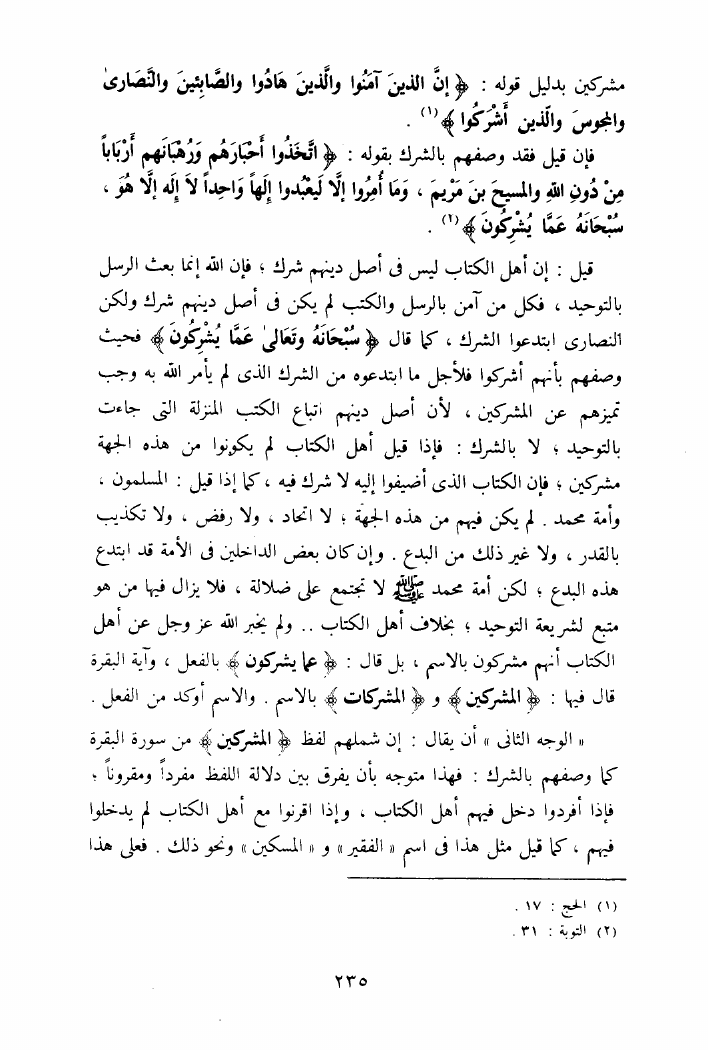 مشركين بدليل قوله : ﴿ إنَّ الذينَ آمَنُوا والَّذينَ هَادُوا والصَّابِئينَ والنَّصَارىٰ
والمجوسَ والَّذين أَشْرَكُوا ﴾(١) .
فإن قيل فقد وصفهم بالشرك بقوله : ﴿ اتَّخَذُوا أَحْبَارَهُم وَرُهْبَانَهم أَرْبَاباً
مِنْ دُونِ اللهِ والمسيحَ بنَ مَرْيمَ ، وَمَا أُمِرُوا إلَّا لِيَعْبُدوا إِلهاً وَاحِداً لاَ إِلٰه إلَّا هُوَ ،
سُبْحَانَهُ عَمَّا يُشْرِكُونَ ﴾(٢) .
قيل : إن أهل الكتاب ليس فى أصل دينهم شرك ؛ فإن الله إنما بعث الرسل
بالتوحيد ، فكل من آمن بالرسل والكتب لم يكن فى أصل دينهم شرك ولكن
النصارى ابتدعوا الشرك ، كما قال ﴿ سُبْحَانَهُ وَتَعَالىٰ عَمَّا يُشْرِكُونَ ﴾ فحيث
وصفهم بأنهم أشركوا فلأجل ما ابتدعوه من الشرك الذى لم يأمر الله به وجب
تميزهم عن المشركين ، لأن أصل دينهم اتباع الكتب المنزلة التى جاءت
بالتوحيد ؛ لا بالشرك : فإذا قيل أهل الكتاب لم يكونوا من هذه الجهة
مشركين ؛ فإن الكتاب الذى أضيفوا إليه لا شرك فيه ، كما إذا قيل : المسلمون ،
وأمة محمد . لم يكن فيهم من هذه الجهة ؛ لا اتحاد ، ولا رفض ، ولا تكذيب
بالقدر ، ولا غير ذلك من البدع . وإن كان بعض الداخلين فى الأمة قد ابتدع
هذه البدع ؛ لكن أمة محمد ﷺ لا تجتمع على ضلالة ، فلا يزال فيها من هو
متبع لشريعة التوحيد ؛ بخلاف أهل الكتاب .. ولم يخبر الله عز وجل عن أهل
الكتاب أنهم مشركون بالاسم ، بل قال : ﴿ عما يشركون ﴾ بالفعل ، وآية البقرة
قال فيها : ﴿ المشركين ﴾ و ﴿ المشركات ﴾ بالاسم . والاسم أوكد من الفعل .
« الوجه الثانى » أن يقال : إن شملهم لفظ ﴿ المشركين ﴾ من سورة البقرة
كما وصفهم بالشرك : فهذا متوجه بأن يفرق بين دلالة اللفظ مفرداً ومقروناً ؛
فإذا أفردوا دخل فيهم أهل الكتاب ، وإذا اقرنوا مع أهل الكتاب لم يدخلوا
فيهم ، كما قيل مثل هذا فى اسم « الفقير » و « المسكين » ونحو ذلك . فعلى هذا
(١) الحج : ١٧ .
(٢) التوبة : ٣١ .
٢٣٥